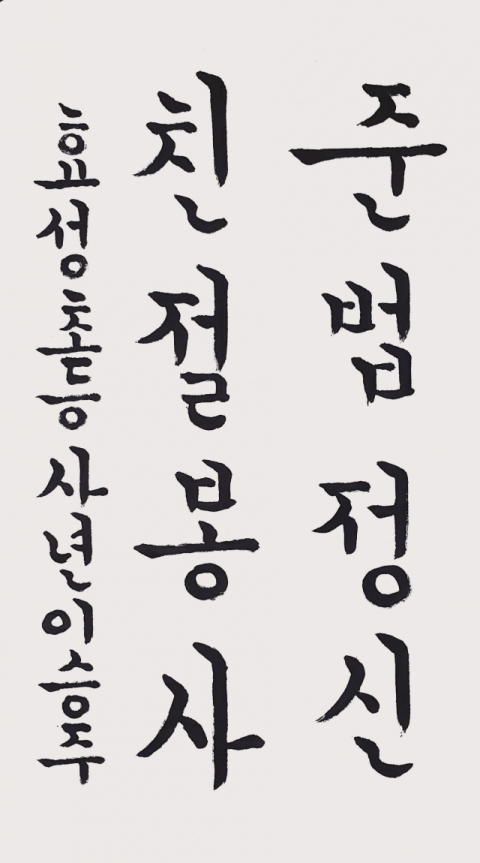 준법정신
친절봉사
효성초등 사년 이승주